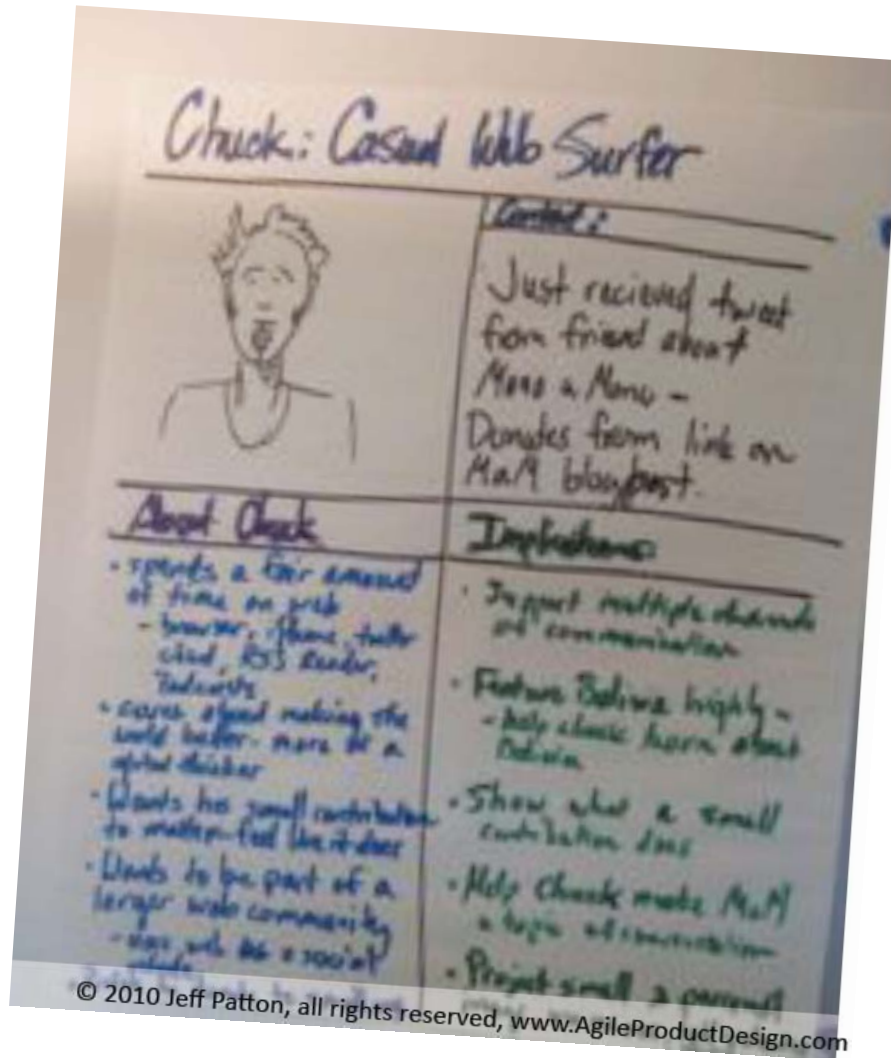 Chuck: Casual Web Surfer
Context:
Just recieved tweet
from friend about
Mano a Mano -
Donates from link on
MaM blogpost.
About Chuck
• spends a fair amount
of time on web
- browser, iphone, twitter
client, RSS Reader,
Podcasts
• cares about making the
world better - more of a
global thinker
• Wants his small contribution
to matter - feel like it does
• Wants to be part of a
larger web community
- web as a social
Implications
• Support multiple channels
of communication
• Feature Bolivia highly -
- help chuck learn about
Bolivia
• Show what a small
contribution does
• Help Chuck make MaM
a topic of conversation
• Project small & personal
© 2010 Jeff Patton, all rights reserved, www.AgileProductDesign.com